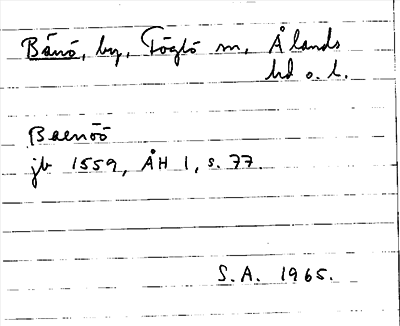 Bänö, by, Föglö sn, Ålands
hd o. l.
Baenöö
jb 1559, ÅH 1, s. 77.
S.A. 1965.